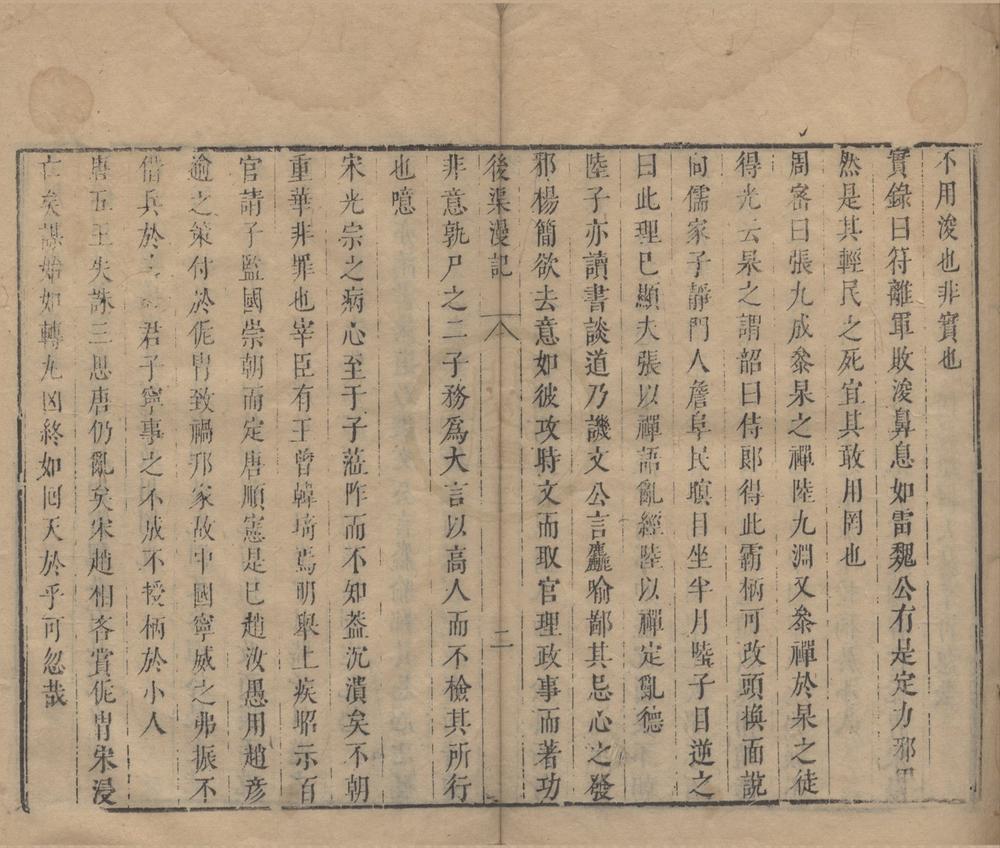 不用浚也非實也
實錄曰符離軍敗浚鼻息如雷魏公有是定力邪
然是其輕民之死宜其敢用罔也
周密曰張九成叅杲之禪陸九淵又叅禪於杲之徒
得光云杲之謂韶曰侍郎得此霸柄可改頭換面說
向儒家子靜門人詹阜民瞑目坐半月陸子目逆之
曰此理已顯夫張以禪語亂經陸以禪定亂德
陸子亦讀書談道乃譏文公言麤喻鄙其忌心之發
邪楊簡欲去意如彼攻時文而取官理政事而著功
後渠漫記
二
非意孰尸之二子務爲大言以高人而不檢其所行
也噫
宋光宗之病心至于子蒞阼而不知葢沉潰矣不朝
重華非罪也宰臣有王曾韓琦焉明舉上疾昭示百
官請子監國崇朝而定唐順憲是已趙汝愚用趙彦
逾之策付於侂胄致禍邦家故中國寧威之弗振不
借兵於君子寧事之不成不授柄於小人
唐五王失誅三思唐仍亂矣宋趙相吝賞侂胄宋浸
亡矣謀始如轉丸図終如囘天於乎可忽哉